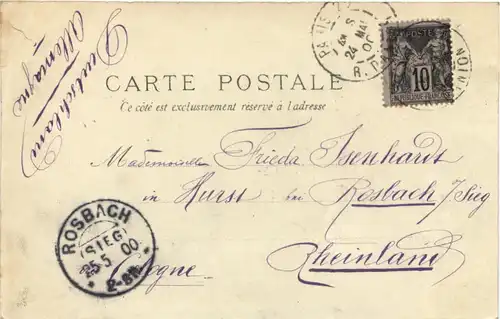 Deutschland
Allemagne
PARIS
24 MAI 00
R. D
POSTE
10
REPUBLIQUE FRANÇAISE
CARTE POSTALE
Ce côté est exclusivement réservé à l'adresse
Mademoiselle Frieda Isenhardt
in Hurst bei Rosbach /Sieg
Rheinland
ROSBACH
(SIEG)
25.5.00